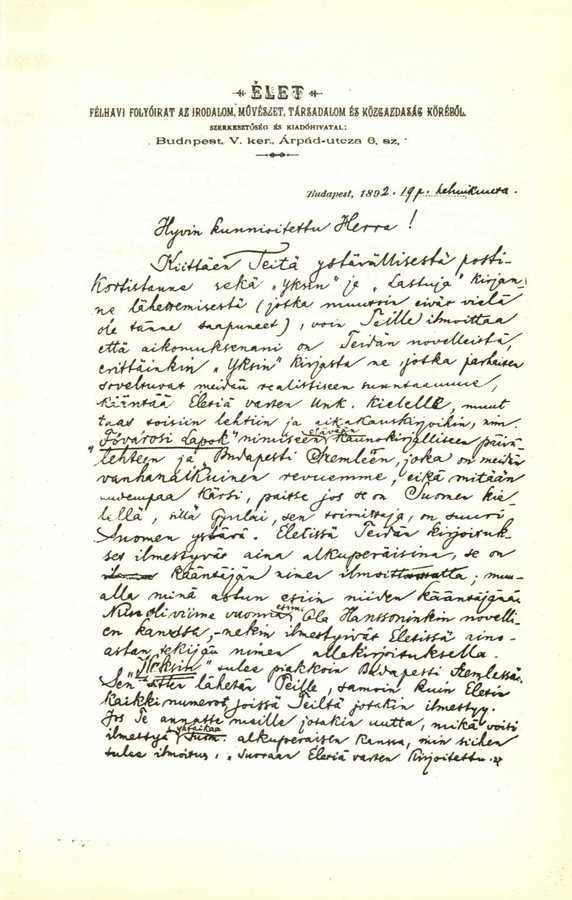 ÉLET
FÉLHAVI FOLYÓIRAT AZ IRODALOM, MŰVÉSZET, TÁRSADALOM ÉS KÖZGAZDASÁG KÖRÉBŐL.
SZERKESZTŐSÉG ÉS KIADÓHIVATAL:
Budapest, V. ker., Árpád-utcza 6. sz.
Budapest, 1892. 19 p. helmikuuta.
Hyvin kunnioitettu Herra!
Kiittäen Teitä ystävällisestä posti-
kortistanne sekä „Yksin" ja „Lastuja" kirjan-
ne lähettämisestä (jotka muuten eivät vielä
ole tänne saapuneet), voin Teille ilmoittaa
että aikomuksenani on Teidän novelleista,
erittäinkin „Yksin" kirjasta ne, jotka parhaiten
soveltuvat meidän realistiseen suuntaamme,
kääntää Eletiä varten unk. kielelle, muut
taas toisiin lehtiin ja aikakauskirjoihin, nim.
„Fővárosi Lapok" nimiseen kaunokirjalliseen päivä-
lehteen ja „Budapesti Szemle"en, joka on meidän
vanhanaikuinen revuemme, eikä mitään
uudempaa kärsi, paitse jos se on Suomen kie-
lellä, sillä Gyulai, sen toimittaja, on suuri
Suomen ystävä. Eletissä Teidän kirjoituk-
set ilmestyvät aina alkuperäisinä, se on
kääntäjän nimen ilmoittamatta; muu-
alla minä astun esiin niiden kääntäjänä.
Niin oli viime vuonna esim. Ola Hanssoninkin novelli-
en kanssa, - nekin ilmestyivät Eletissä aino-
astan tekijän nimen allekirjoituksella.
„Yksin" tulee piakkoin Budapesti Szemlessä.
Sen lähetän Teille, samoin kuin Eletin
kaikki numerot, joissa Teiltä jotakin ilmestyy.
Jos Te annatte meille jotakin uutta, mikä voisi
ilmestyä yhtaikaa alkuperäisen kanssa, niin siihen
tulee ilmoitus: „Suoraan Eletiä varten kirjoitettu."